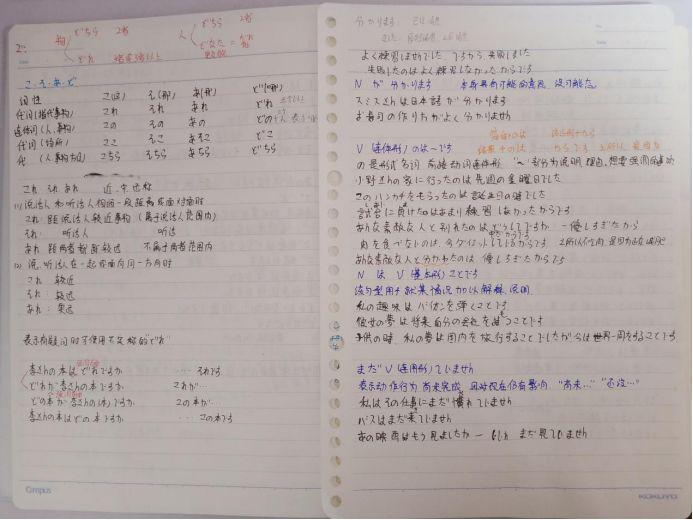 物 どちら 2者
どれ 三者或三者以上
人 どちら 2者
どなた = だれ
こ・そ・あ・ど
词性 こ(这) そ(那) あ(那) ど(哪)
代词(指代事物) これ それ あれ どれ
连体词(人、事物) この その あの どの
代词(场所) ここ そこ あそこ どこ
代(人事物方位) こちら そちら あちら どちら
これ それ あれ 近、中、远称
(1) 说话人和听话人相隔一段距离或面对面时
これ 距说话人较近事物(属于说话人范围内)
それ: 听话人 听话
あれ 距两者都较远 不属于两者范围内
(2) 说、听话人在一起或面向同一方向时
これ 较近
それ: 较远
あれ: 更远
表示有疑问时不使用
李さんの本はどれですか ‥‥ それです
どれが李さんの本ですか これが‥‥
どの本が李さんの(本)ですか この本が‥‥
李さんの本はどの本ですか ‥‥ この本です
Campus
分かります:
よく練習しませんでした、ですから、失敗しました
失敗したのはよく練習しなかったからです
N が 分かります 本身具有可能的意思、没可能态
スミスさんは日本語が分かります
お寿司の作り方がよく分かりました
V (连体形) のは~です
小野さんの家に行ったのは先週の金曜日でした
このハンカチをもらったのは誕生日の時でした
試合に負けたのはあまり練習しなかったからです
あんな素敵な人と別れたのはどうしてですか ー 優しすぎたから
肉を食べないのは、今ダイエットしているからです
あんな素敵な人と分かれたのは 優しすぎたからです
N は V (基本形) ことです
该句型用于就某情况加以解释、说明
私の趣味はバイオリンを弾くことです
彼女の夢は将来自分の会社を建つことです
子供の時、私の夢は国内を旅行することでしたが今は世界一周をすることです
まだ V (连用形) ていません
表示动作行为尚未完成, 且对现在仍有影响 "尚未…" "还没…"
私はその仕事にまだ慣れていません
バスはまだ来ていません
あの映画はもう見ましたか ー いいえ まだ見ていません
KOKUYO